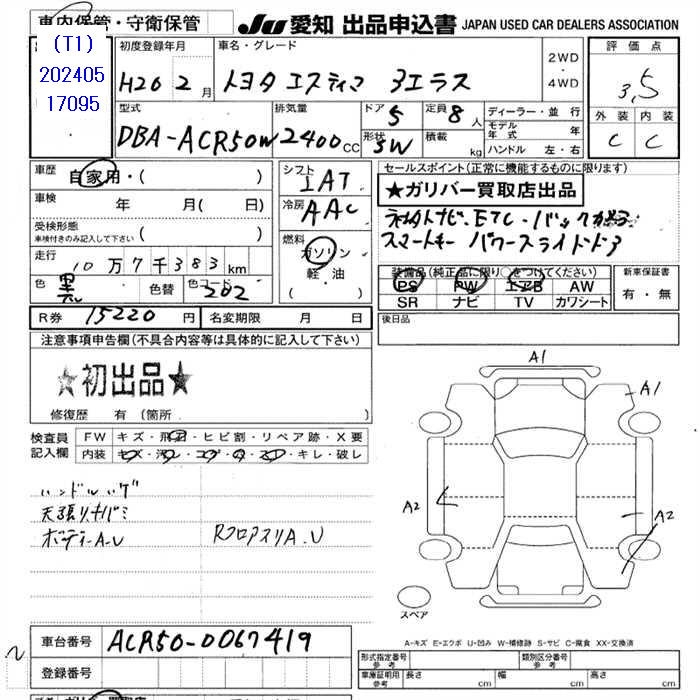 車内保管・守衛保管
JU 愛知 出品申込書 JAPAN USED CAR DEALERS ASSOCIATION
(T1)
202405
17095
初度登録年月 車名・グレード 2WD ・ 4WD
H20 2月 トヨタ エスティマ 3エラス
評価点
3.5
外装 内装
C C
型式 排気量 ドア 定員 ディーラー・並行
DBA-ACR50W 2400cc 5 8人
形状 積載 モデル年式 年
5W kg ハンドル 左・右
車歴 自家用・( )
シフト IAT
セールスポイント(正常に機能するものに限ります)
★ガリバー買取店出品
車検 年 月( 日)
冷房 AAC
ナビ、ETC、バックカメラ
スマートキー パワースライドドア
受検形態
車検付きのみ記入して下さい ( )
燃料 ガソリン 軽・油 ( )
走行 10万7千383km
色 黒 色替 色コード 202
装備品(純正品に限り○をつけてください) 新車保証書
PS PW エアB AW 有・無
SR ナビ TV カワシート
R券 15220円 名変期限 月 日
後日品
注意事項申告欄(不具合内容等は具体的に記入して下さい)
★初出品★
修復歴 有(箇所
A1
A1
検査員記入欄 FW キズ・飛石・ヒビ割・リペア跡・X要
内装 キズ・汚レ・コゲ・穴・スレ・キレ・破レ
ハンドルハゲ
天張リナバミ
ボディーA.U RフロアスリA.U
A2
A2
スペア
A-キズ E-エクボ U-凹み W-補修跡 S-サビ C-腐食 XX-交換済
車台番号 ACR50-0067419
登録番号
形式指定番号 参考 類別区分番号 参考
車庫証明用 参考 長さ cm 幅 cm 高さ cm